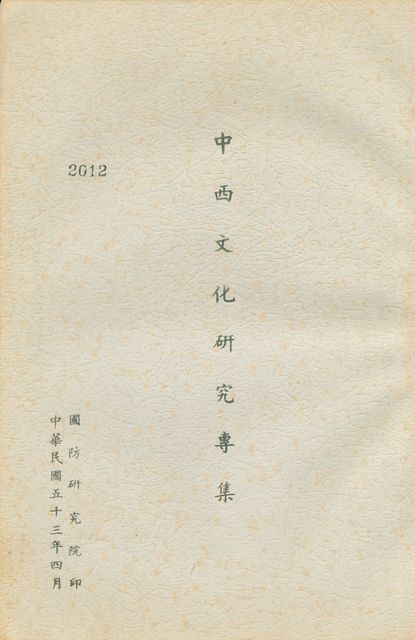 中西文化研究專集
2012
國防研究院印
中華民國五十三年四月